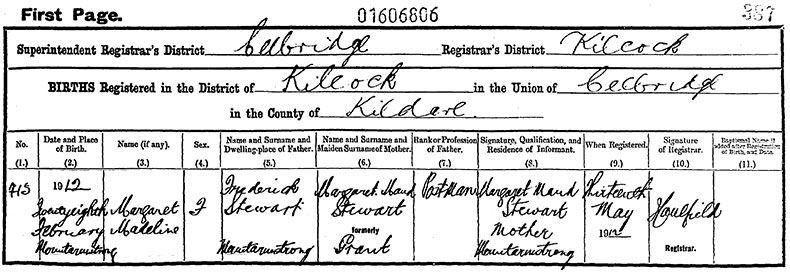 First Page. 01606806 387
Superintendent Registrar's District Celbridge Registrar's District Kilcock
BIRTHS Registered in the District of Kilcock in the Union of Celbridge
in the County of Kildare.
No. Date and Place of Birth. Name (if any). Sex. Name and Surname and Dwelling-place of Father. Name and Surname and Maiden Surname of Mother. Rank or Profession of Father. Signature, Qualification, and Residence of Informant. When Registered. Signature of Registrar. Baptismal Name if added after Registration of Birth, and Date.
(1.) (2.) (3.) (4.) (5.) (6.) (7.) (8.) (9.) (10.) (11.)
1912 Frederick Margaret Maud Postman Margaret Maud Thirteenth
Twentyeighth Margaret F Stewart Stewart Stewart May
February Madeline formerly Mother 1912
Mountarmstrong Mountarmstrong Grant Mountarmstrong Registrar.